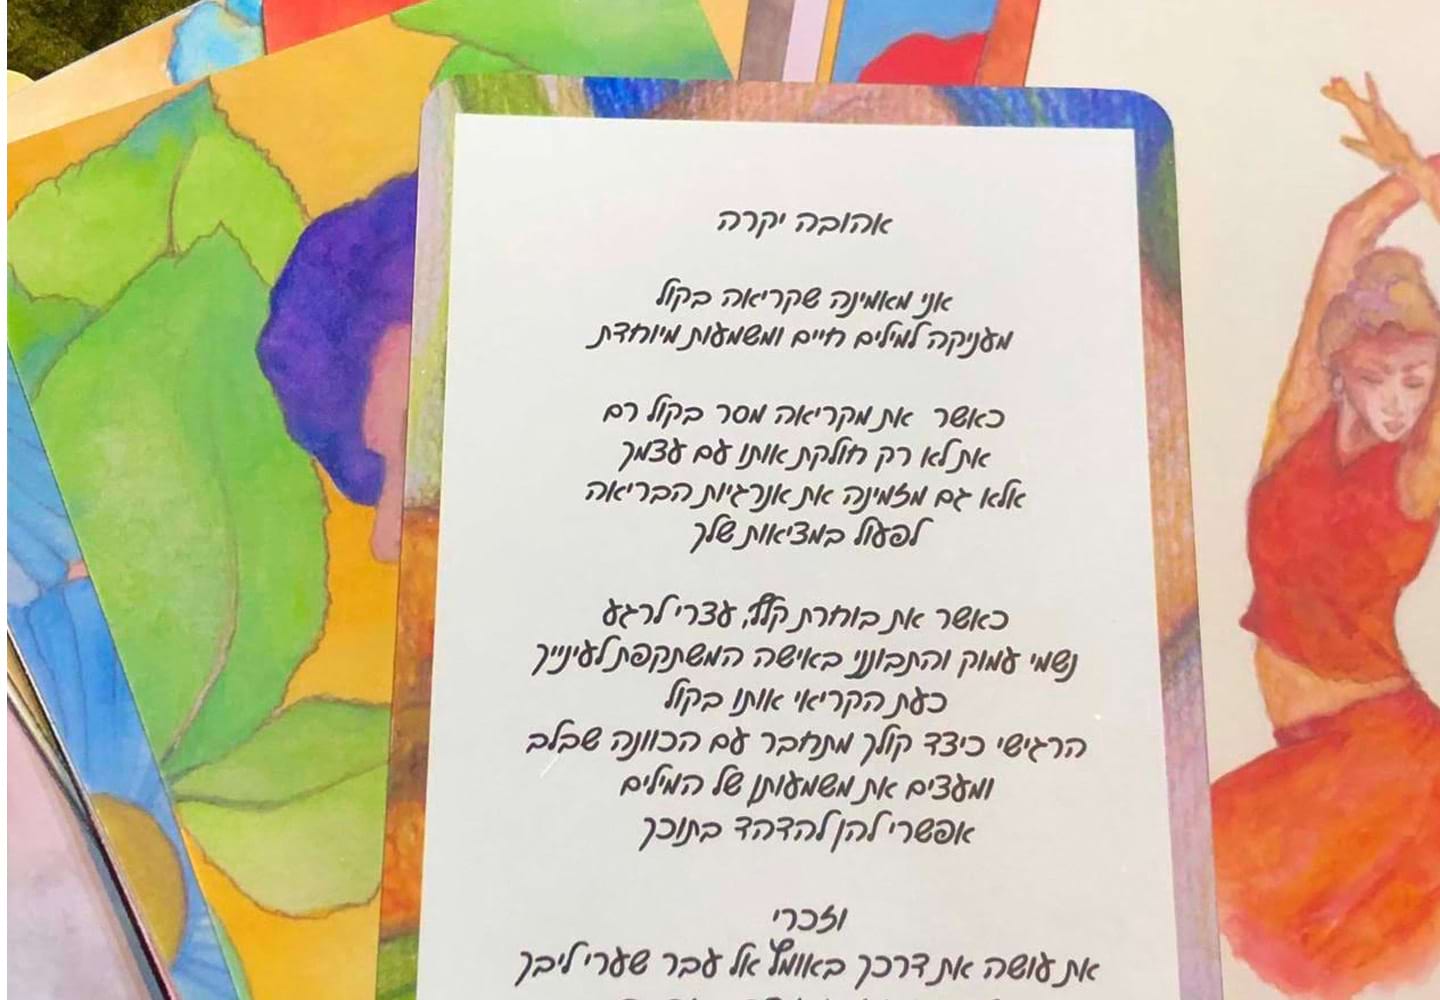 אהובה יקרה
אני מאמינה שקריאה בקול
מעניקה למילים חיים ומשמעות מיוחדת
כאשר את מקריאה מסר בקול רם
את לא רק חולקת אותו עם עצמך
אלא גם מזמינה את אנרגיות הבריאה
לפעול במציאות שלך
כאשר את בוחרת קלף, עצרי לרגע
נשמי עמוק והתבונני באישה המשתקפת לעינייך
כעת הקריאי אותו בקול
הרגישי כיצד קולך מתחבר עם הכוונה שבלב
ומעצים את משמעותן של המילים
אפשרי להן להדהד בתוכך
וזכרי
את עושה את דרכך באומץ אל עבר שערי ליבך